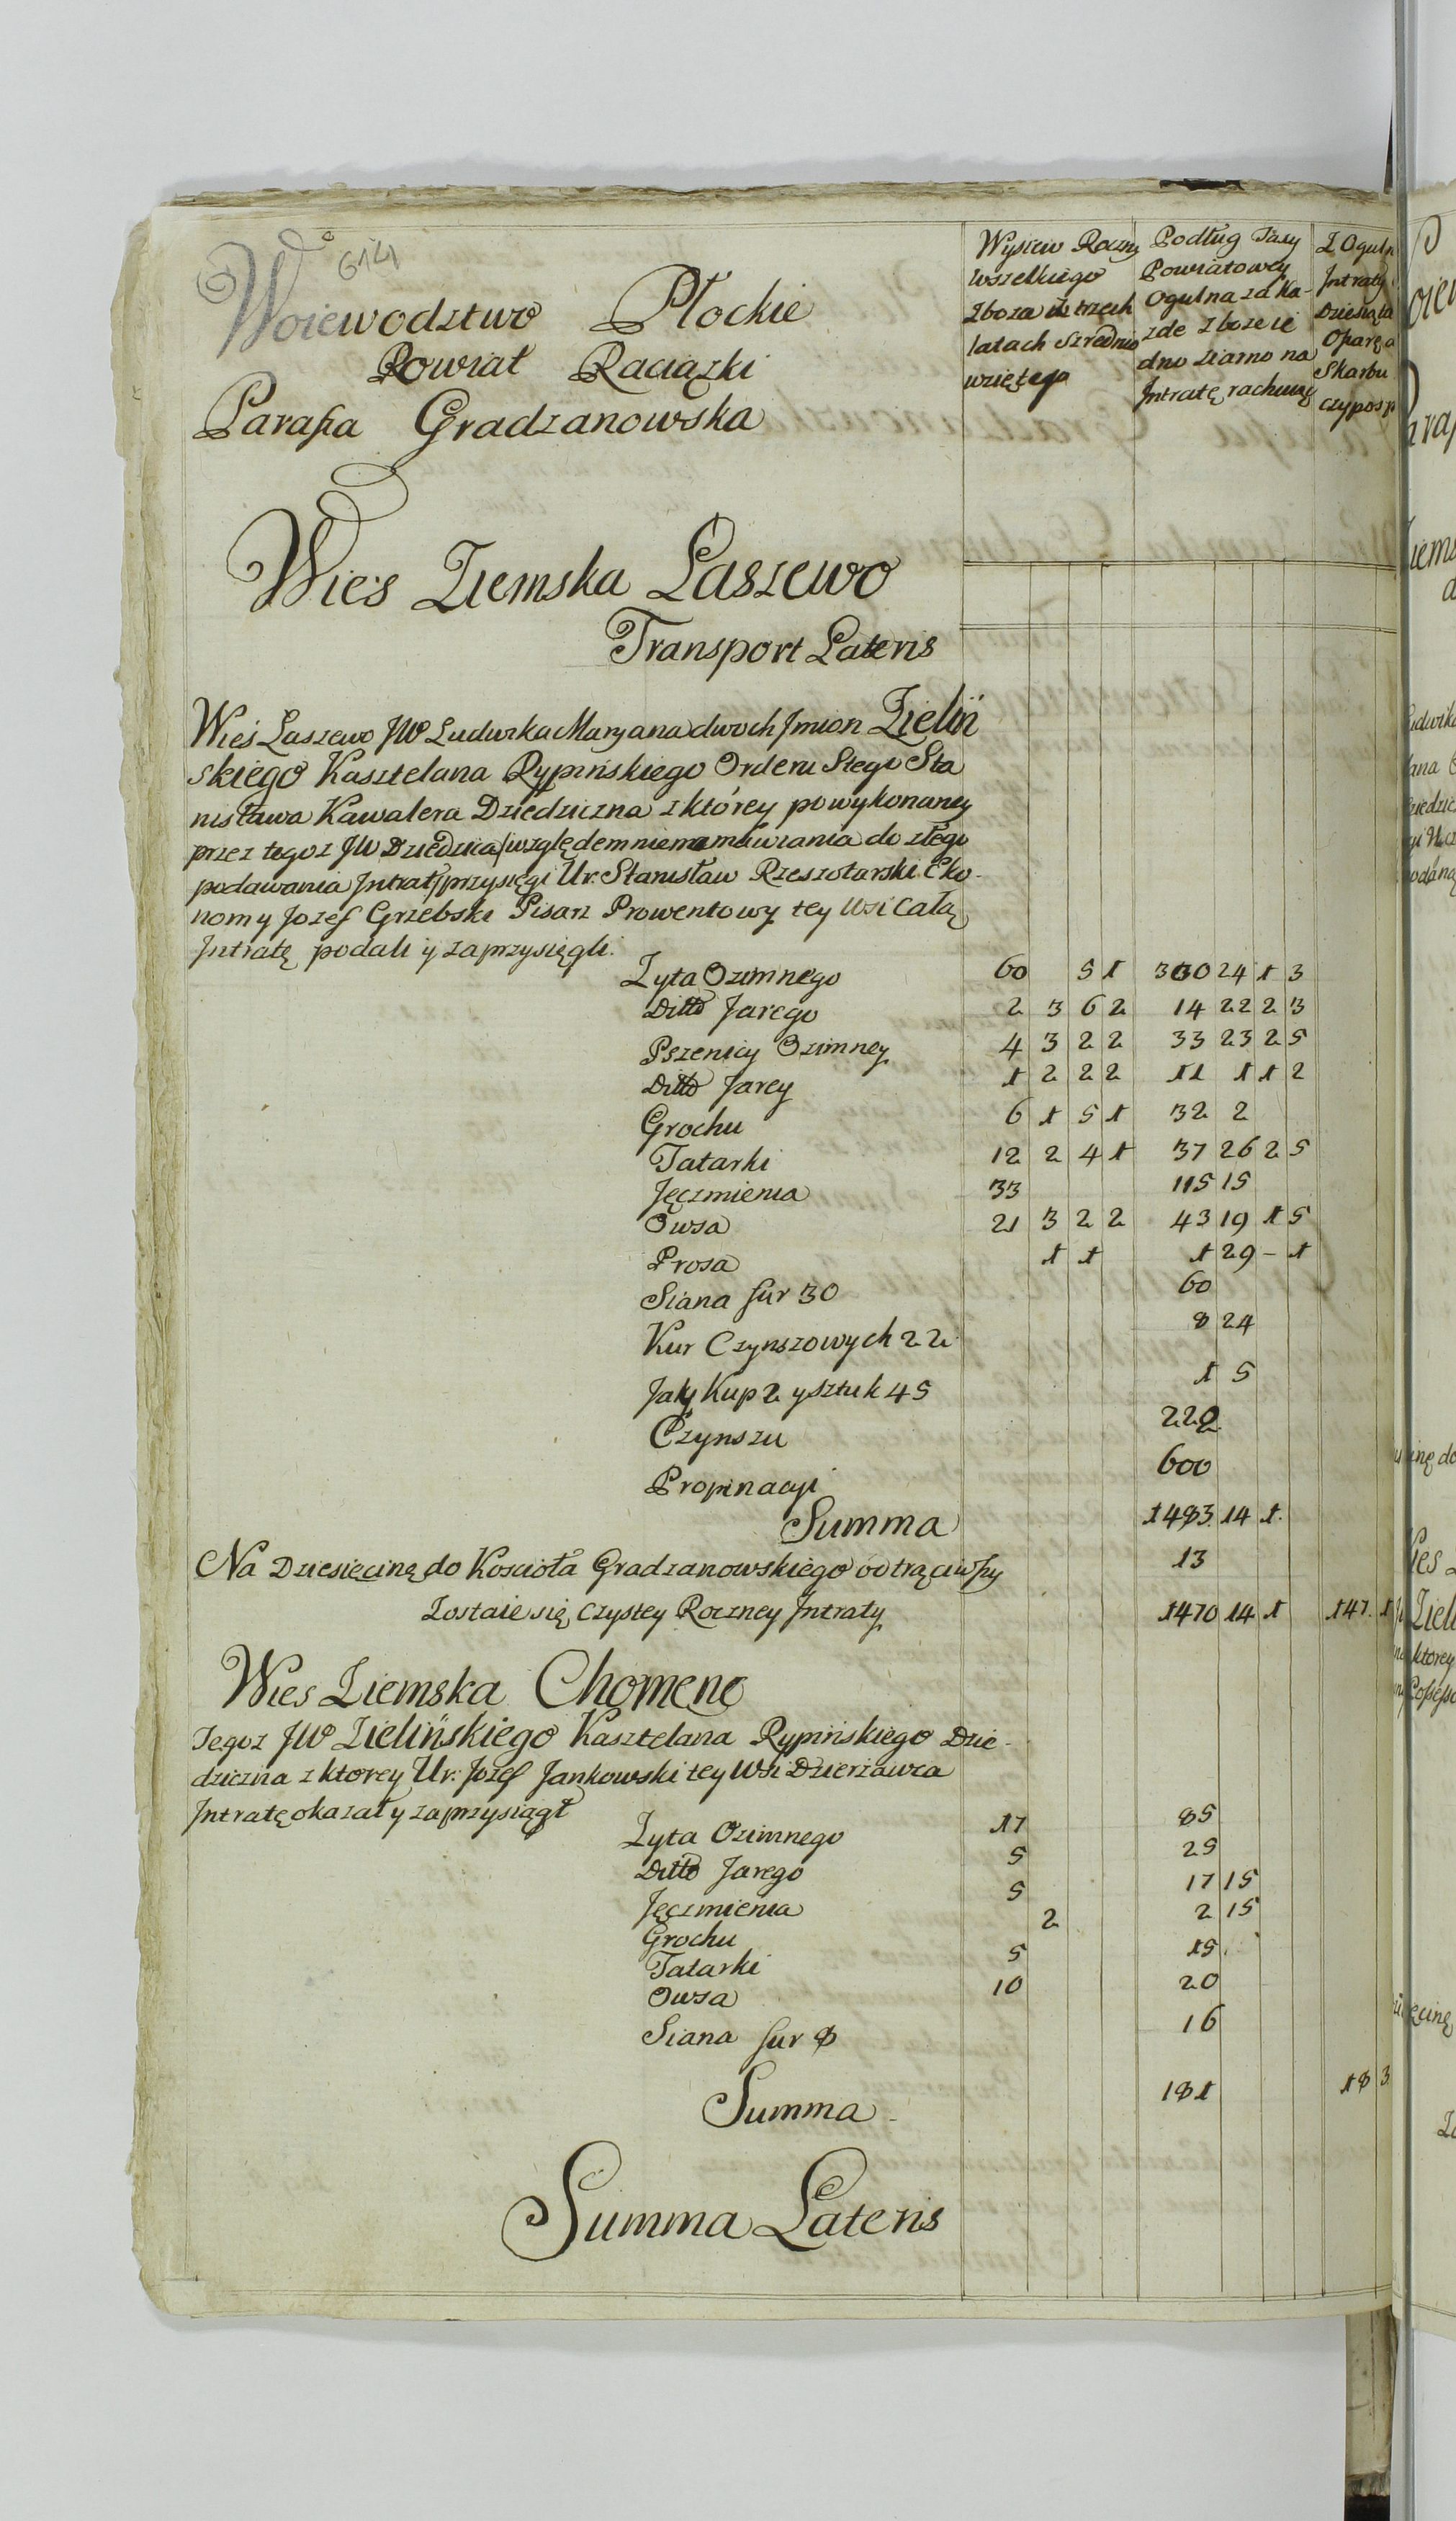 614
Woiewodztwo Płockie
Powiat Raciązki
Parafia Gradzanowska
Wysiew Roczny
wszelkiego
Zboza w trzech
latach szrednio
wziętego
Podług Taxy
Powiatowey
Ogulna za Ka-
zde zboze ie
dno ziarno na
Intratę rachuiąc
Z Oguln
Intraty
Dziesiąta
Ofiara
Skarbu
czyposp
Wieś Ziemska Laszewo
Transport Lateris
Wieś Laszewo JW Ludwika Maryana dwoch Jmion Zieliń
skiego Kasztelana Rypińskiego Orderu Stego Sta
nisława Kawalera Dziedziczna z którey po wykonaney
przez tegoz JW Dziedzica (względem nienamawiania do złego
podawania Intraty) przysięgi Ur: Stanisław Rzeszotarski Eko-
nom y Jozef Grzebski Pisarz Prowentowy tey Wsi Całą
Intratę podali y zaprzysięgli.
Zyta Ozimnego 60 5 1 300 24 1 3
Ditto Jarego 2 3 6 2 14 22 2 3
Pszenicy Ozimney 4 3 2 2 33 23 2 5
Ditto Jarey 1 2 2 2 11 1 1 2
Grochu 6 1 5 1 32 2
Tatarki 12 2 4 1 37 26 2 5
Jęczmienia 33 115 15
Owsa 21 3 2 2 43 19 1 5
Prosa 1 1 1 29 - 1
Siana fur 30 60
Kur Czynszowych 22 8 24
Jaiy Kup 2 y sztuk 45 1 5
Czynszu 222
Propinacyi 600
Summa 1483 14 1.
Na Dziesięcinę do Koscioła Gradzanowskiego odtrąciwszy 13
Zostaie się czystey Roczney Intraty 1470 14 1 147. 1
Wies Ziemska Chomenc
Tegoz JW Zielińskiego Kasztelana Rypińskiego Dzie-
dziczna z ktorey Ur: Jozef Jankowski tey Wsi Dzierzawca
Intratę okazał y zaprzysiągł
Zyta Ozimnego 17 85
Ditto Jarego 5 25
Jęczmienia 5 17 15
Grochu 2 2 15
Tatarki 5 15
Owsa 10 20
Siana fur 8 16
Summa 181 18 3
Summa Lateris